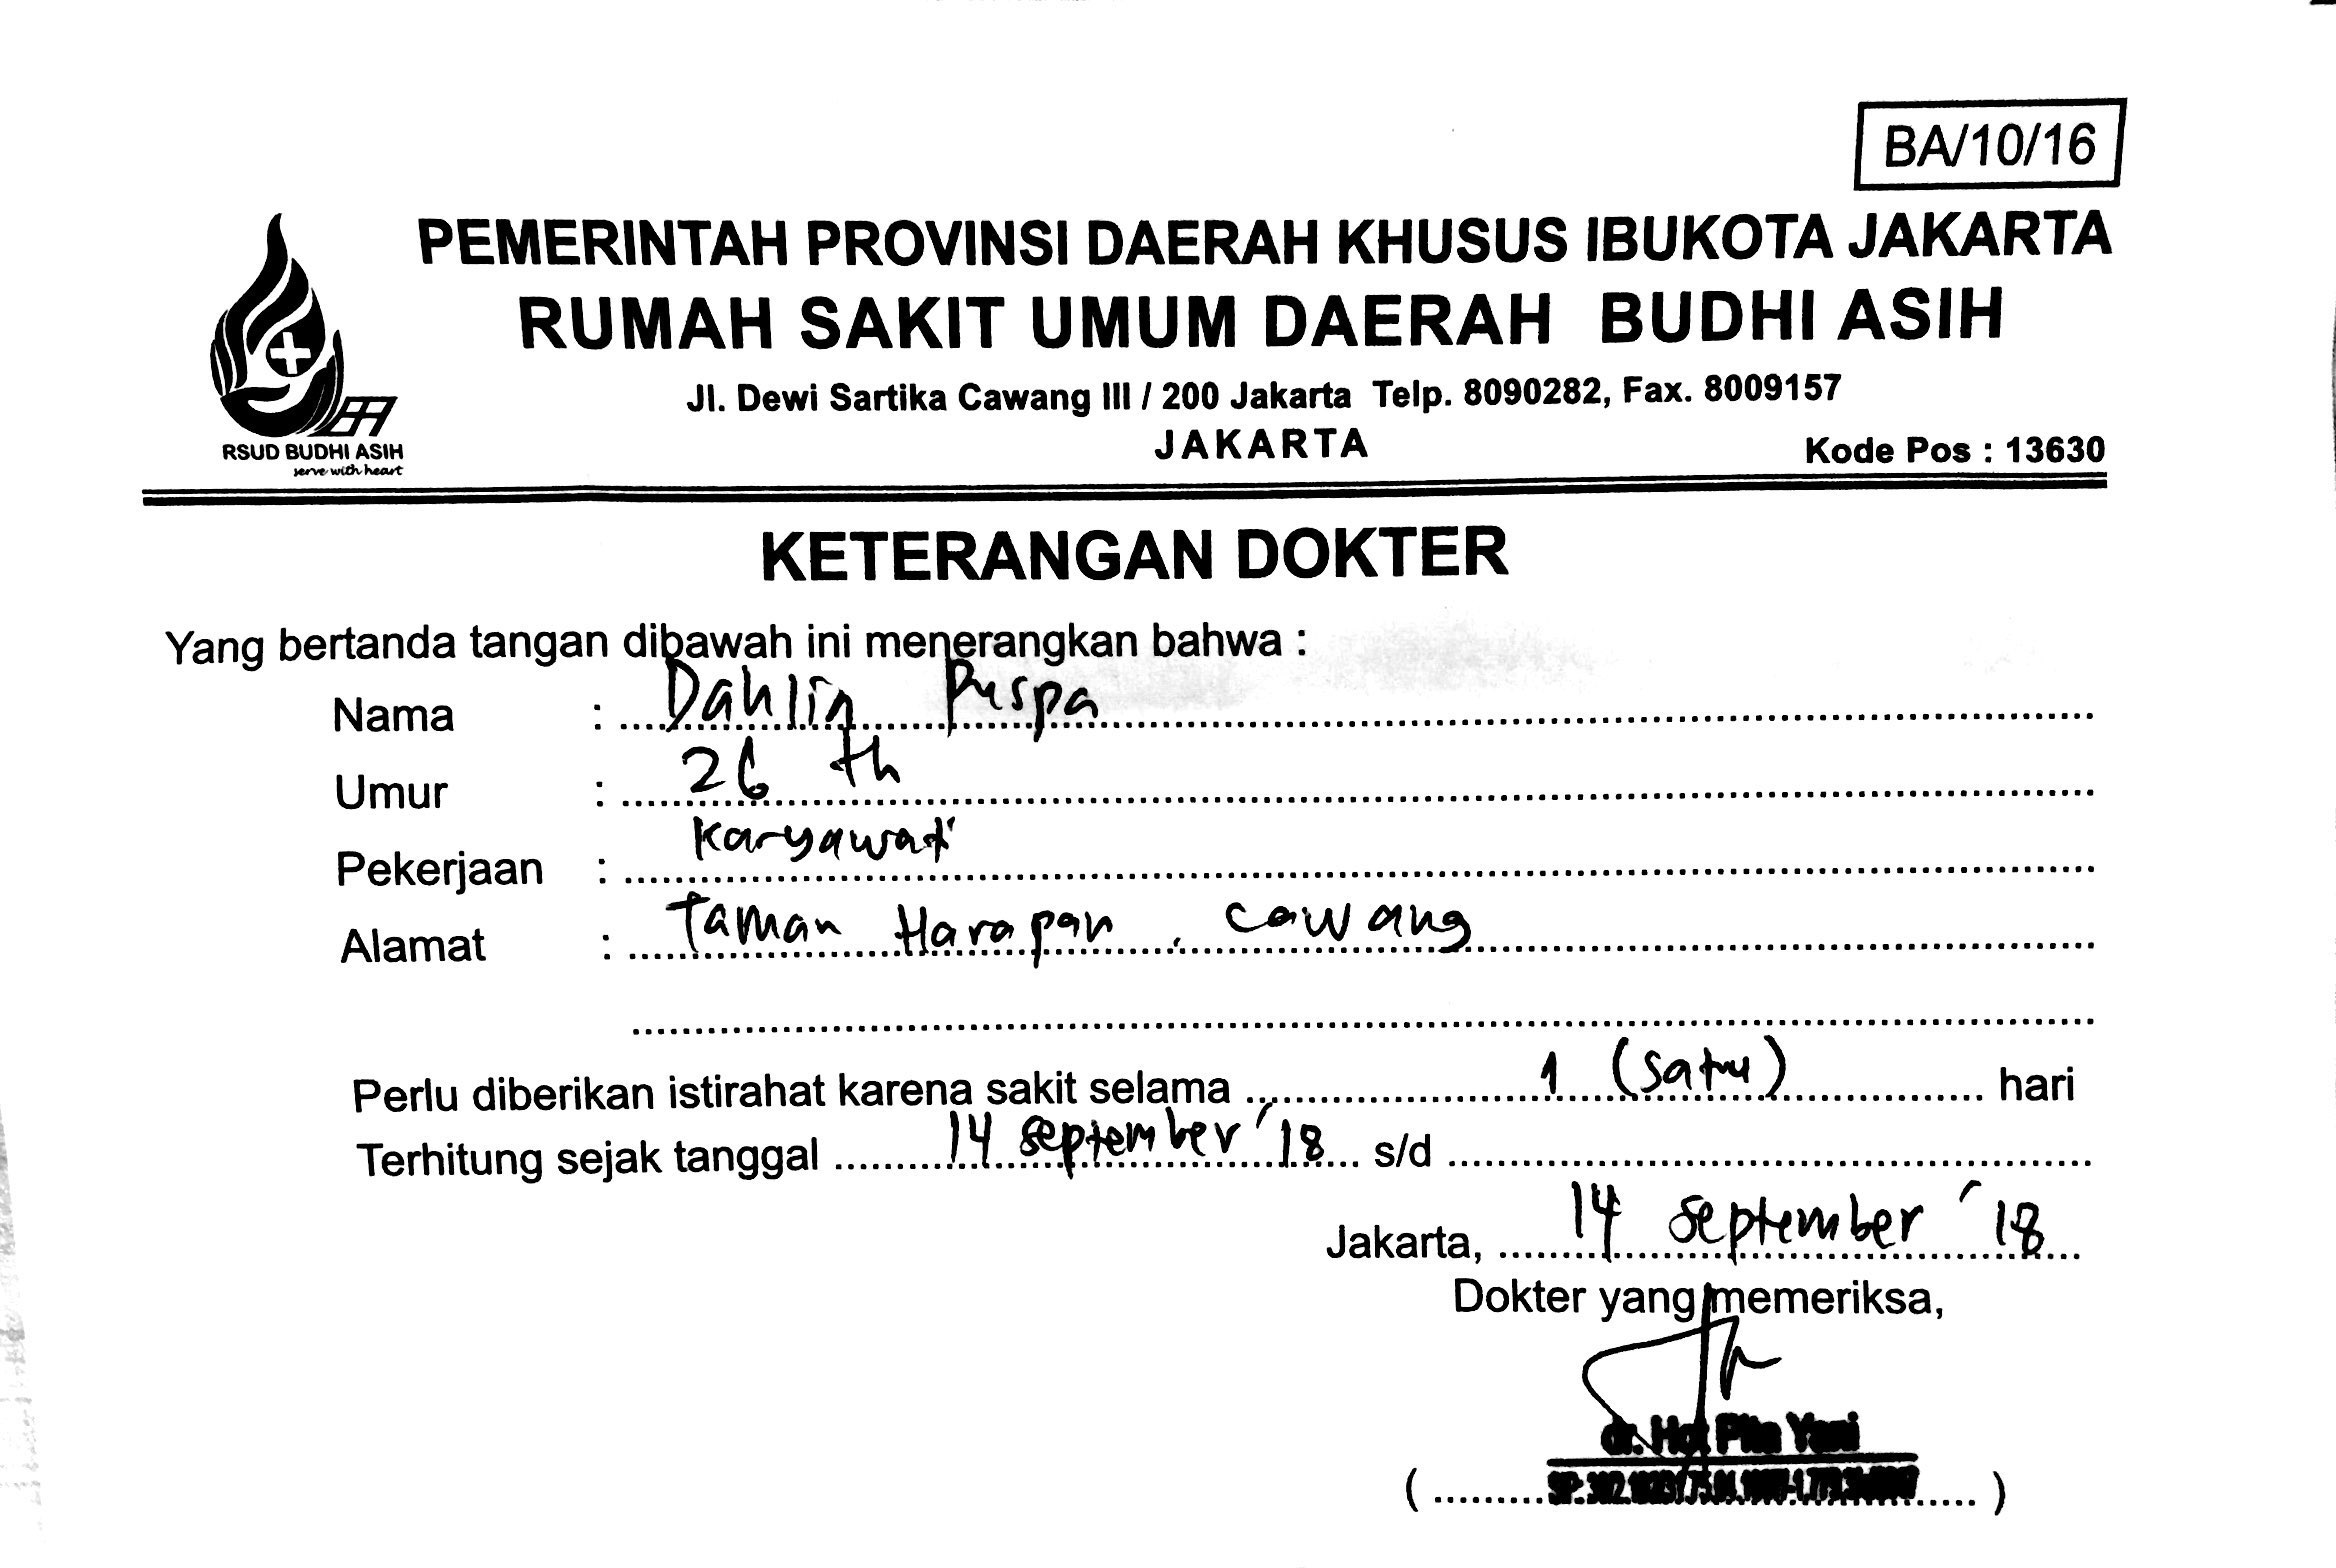 BA/10/16
PEMERINTAH PROVINSI DAERAH KHUSUS IBUKOTA JAKARTA
RUMAH SAKIT UMUM DAERAH BUDHI ASIH
Jl. Dewi Sartika Cawang III / 200 Jakarta Telp. 8090282, Fax. 8009157
JAKARTA
Kode Pos : 13630
RSUD BUDHI ASIH
serve with heart
KETERANGAN DOKTER
Yang bertanda tangan dibawah ini menerangkan bahwa :
Nama : Dahlia Puspa
Umur : 26 th
Pekerjaan : Karyawati
Alamat : Taman Harapan, Cawang
Perlu diberikan istirahat karena sakit selama 1 (satu) hari
Terhitung sejak tanggal 14 september '18 s/d
Jakarta, 14 september '18
Dokter yang memeriksa,
dr. Pita Yani